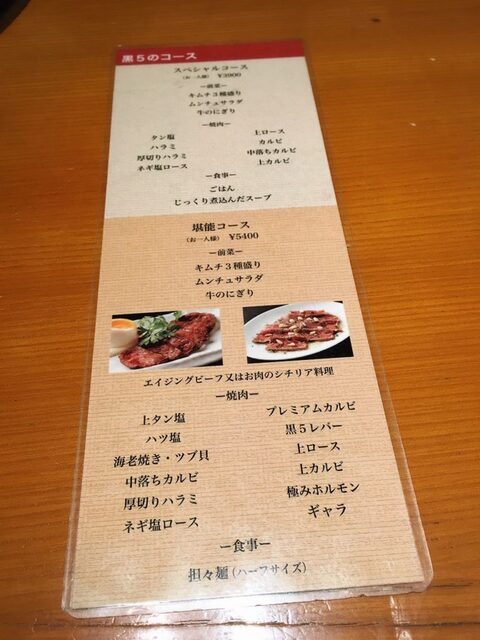 黒5のコース
スペシャルコース
(お一人様) ¥3900
ー前菜ー
キムチ3種盛り
ムンチュサラダ
牛のにぎり
ー焼肉ー
タン塩
ハラミ
厚切りハラミ
ネギ塩ロース
上ロース
カルビ
中落ちカルビ
上カルビ
ー食事ー
ごはん
じっくり煮込んだスープ
堪能コース
(お一人様) ¥5400
ー前菜ー
キムチ3種盛り
ムンチュサラダ
牛のにぎり
エイジングビーフ又はお肉のシチリア料理
ー焼肉ー
上タン塩
ハツ塩
海老焼き・ツブ貝
中落ちカルビ
厚切りハラミ
ネギ塩ロース
プレミアムカルビ
黒5レバー
上ロース
上カルビ
極みホルモン
ギャラ
ー食事ー
担々麺(ハーフサイズ)